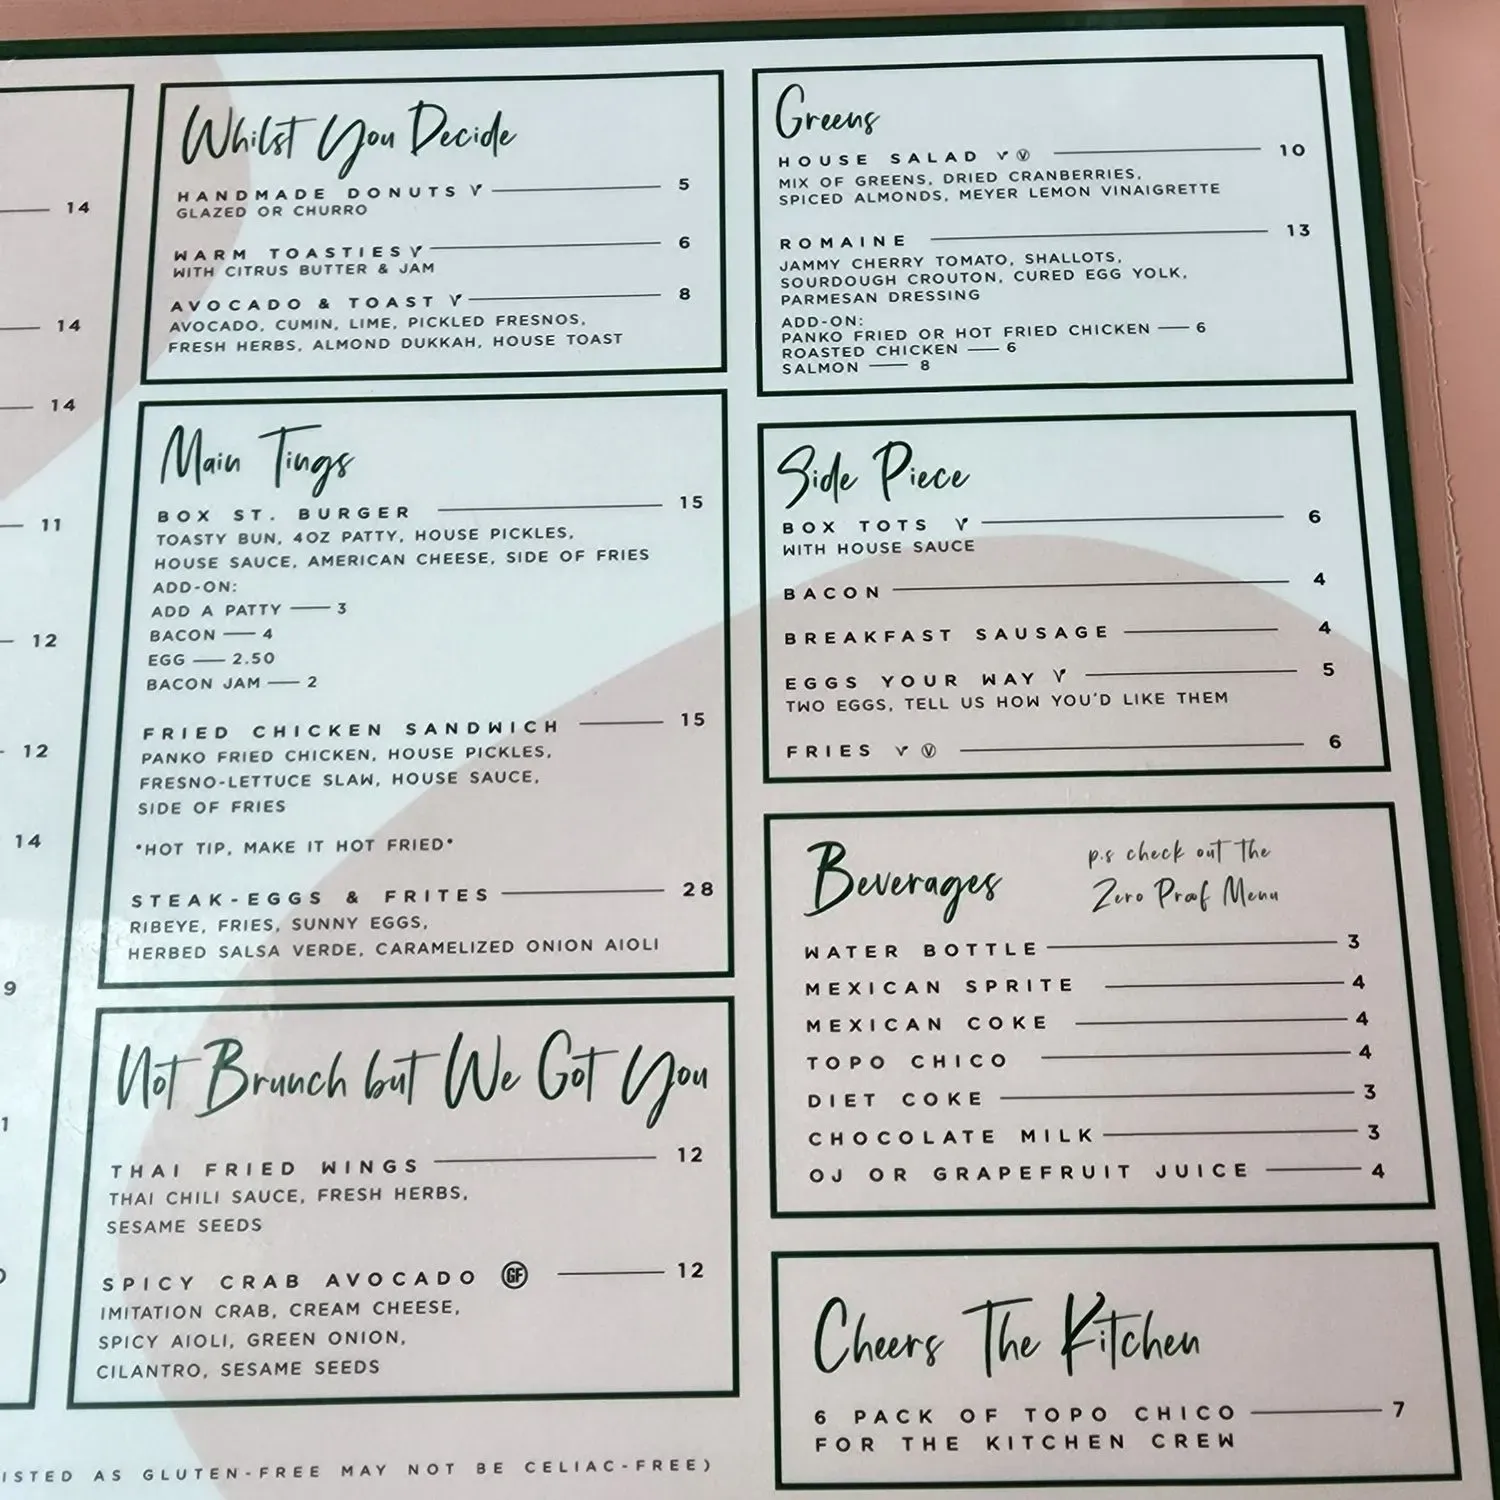 14
14
14
11
12
12
14
9
1
Whilst You Decide
HANDMADE DONUTS 5
GLAZED OR CHURRO
WARM TOASTIES 6
WITH CITRUS BUTTER & JAM
AVOCADO & TOAST 8
AVOCADO, CUMIN, LIME, PICKLED FRESNOS,
FRESH HERBS, ALMOND DUKKAH, HOUSE TOAST
Main Tings
BOX ST. BURGER 15
TOASTY BUN, 4OZ PATTY, HOUSE PICKLES,
HOUSE SAUCE, AMERICAN CHEESE, SIDE OF FRIES
ADD-ON:
ADD A PATTY — 3
BACON — 4
EGG — 2.50
BACON JAM — 2
FRIED CHICKEN SANDWICH 15
PANKO FRIED CHICKEN, HOUSE PICKLES,
FRESNO-LETTUCE SLAW, HOUSE SAUCE,
SIDE OF FRIES
*HOT TIP, MAKE IT HOT FRIED*
STEAK-EGGS & FRITES 28
RIBEYE, FRIES, SUNNY EGGS,
HERBED SALSA VERDE, CARAMELIZED ONION AIOLI
Not Brunch but We Got You
THAI FRIED WINGS 12
THAI CHILI SAUCE, FRESH HERBS,
SESAME SEEDS
SPICY CRAB AVOCADO GF 12
IMITATION CRAB, CREAM CHEESE,
SPICY AIOLI, GREEN ONION,
CILANTRO, SESAME SEEDS
ISTED AS GLUTEN-FREE MAY NOT BE CELIAC-FREE)
Greens
HOUSE SALAD V 10
MIX OF GREENS, DRIED CRANBERRIES,
SPICED ALMONDS, MEYER LEMON VINAIGRETTE
ROMAINE 13
JAMMY CHERRY TOMATO, SHALLOTS,
SOURDOUGH CROUTON, CURED EGG YOLK,
PARMESAN DRESSING
ADD-ON:
PANKO FRIED OR HOT FRIED CHICKEN — 6
ROASTED CHICKEN — 6
SALMON — 8
Side Piece
BOX TOTS 6
WITH HOUSE SAUCE
BACON 4
BREAKFAST SAUSAGE 4
EGGS YOUR WAY 5
TWO EGGS, TELL US HOW YOU'D LIKE THEM
FRIES V 6
Beverages
p.s check out the
Zero Proof Menu
WATER BOTTLE 3
MEXICAN SPRITE 4
MEXICAN COKE 4
TOPO CHICO 4
DIET COKE 3
CHOCOLATE MILK 3
OJ OR GRAPEFRUIT JUICE 4
Cheers The Kitchen
6 PACK OF TOPO CHICO 7
FOR THE KITCHEN CREW